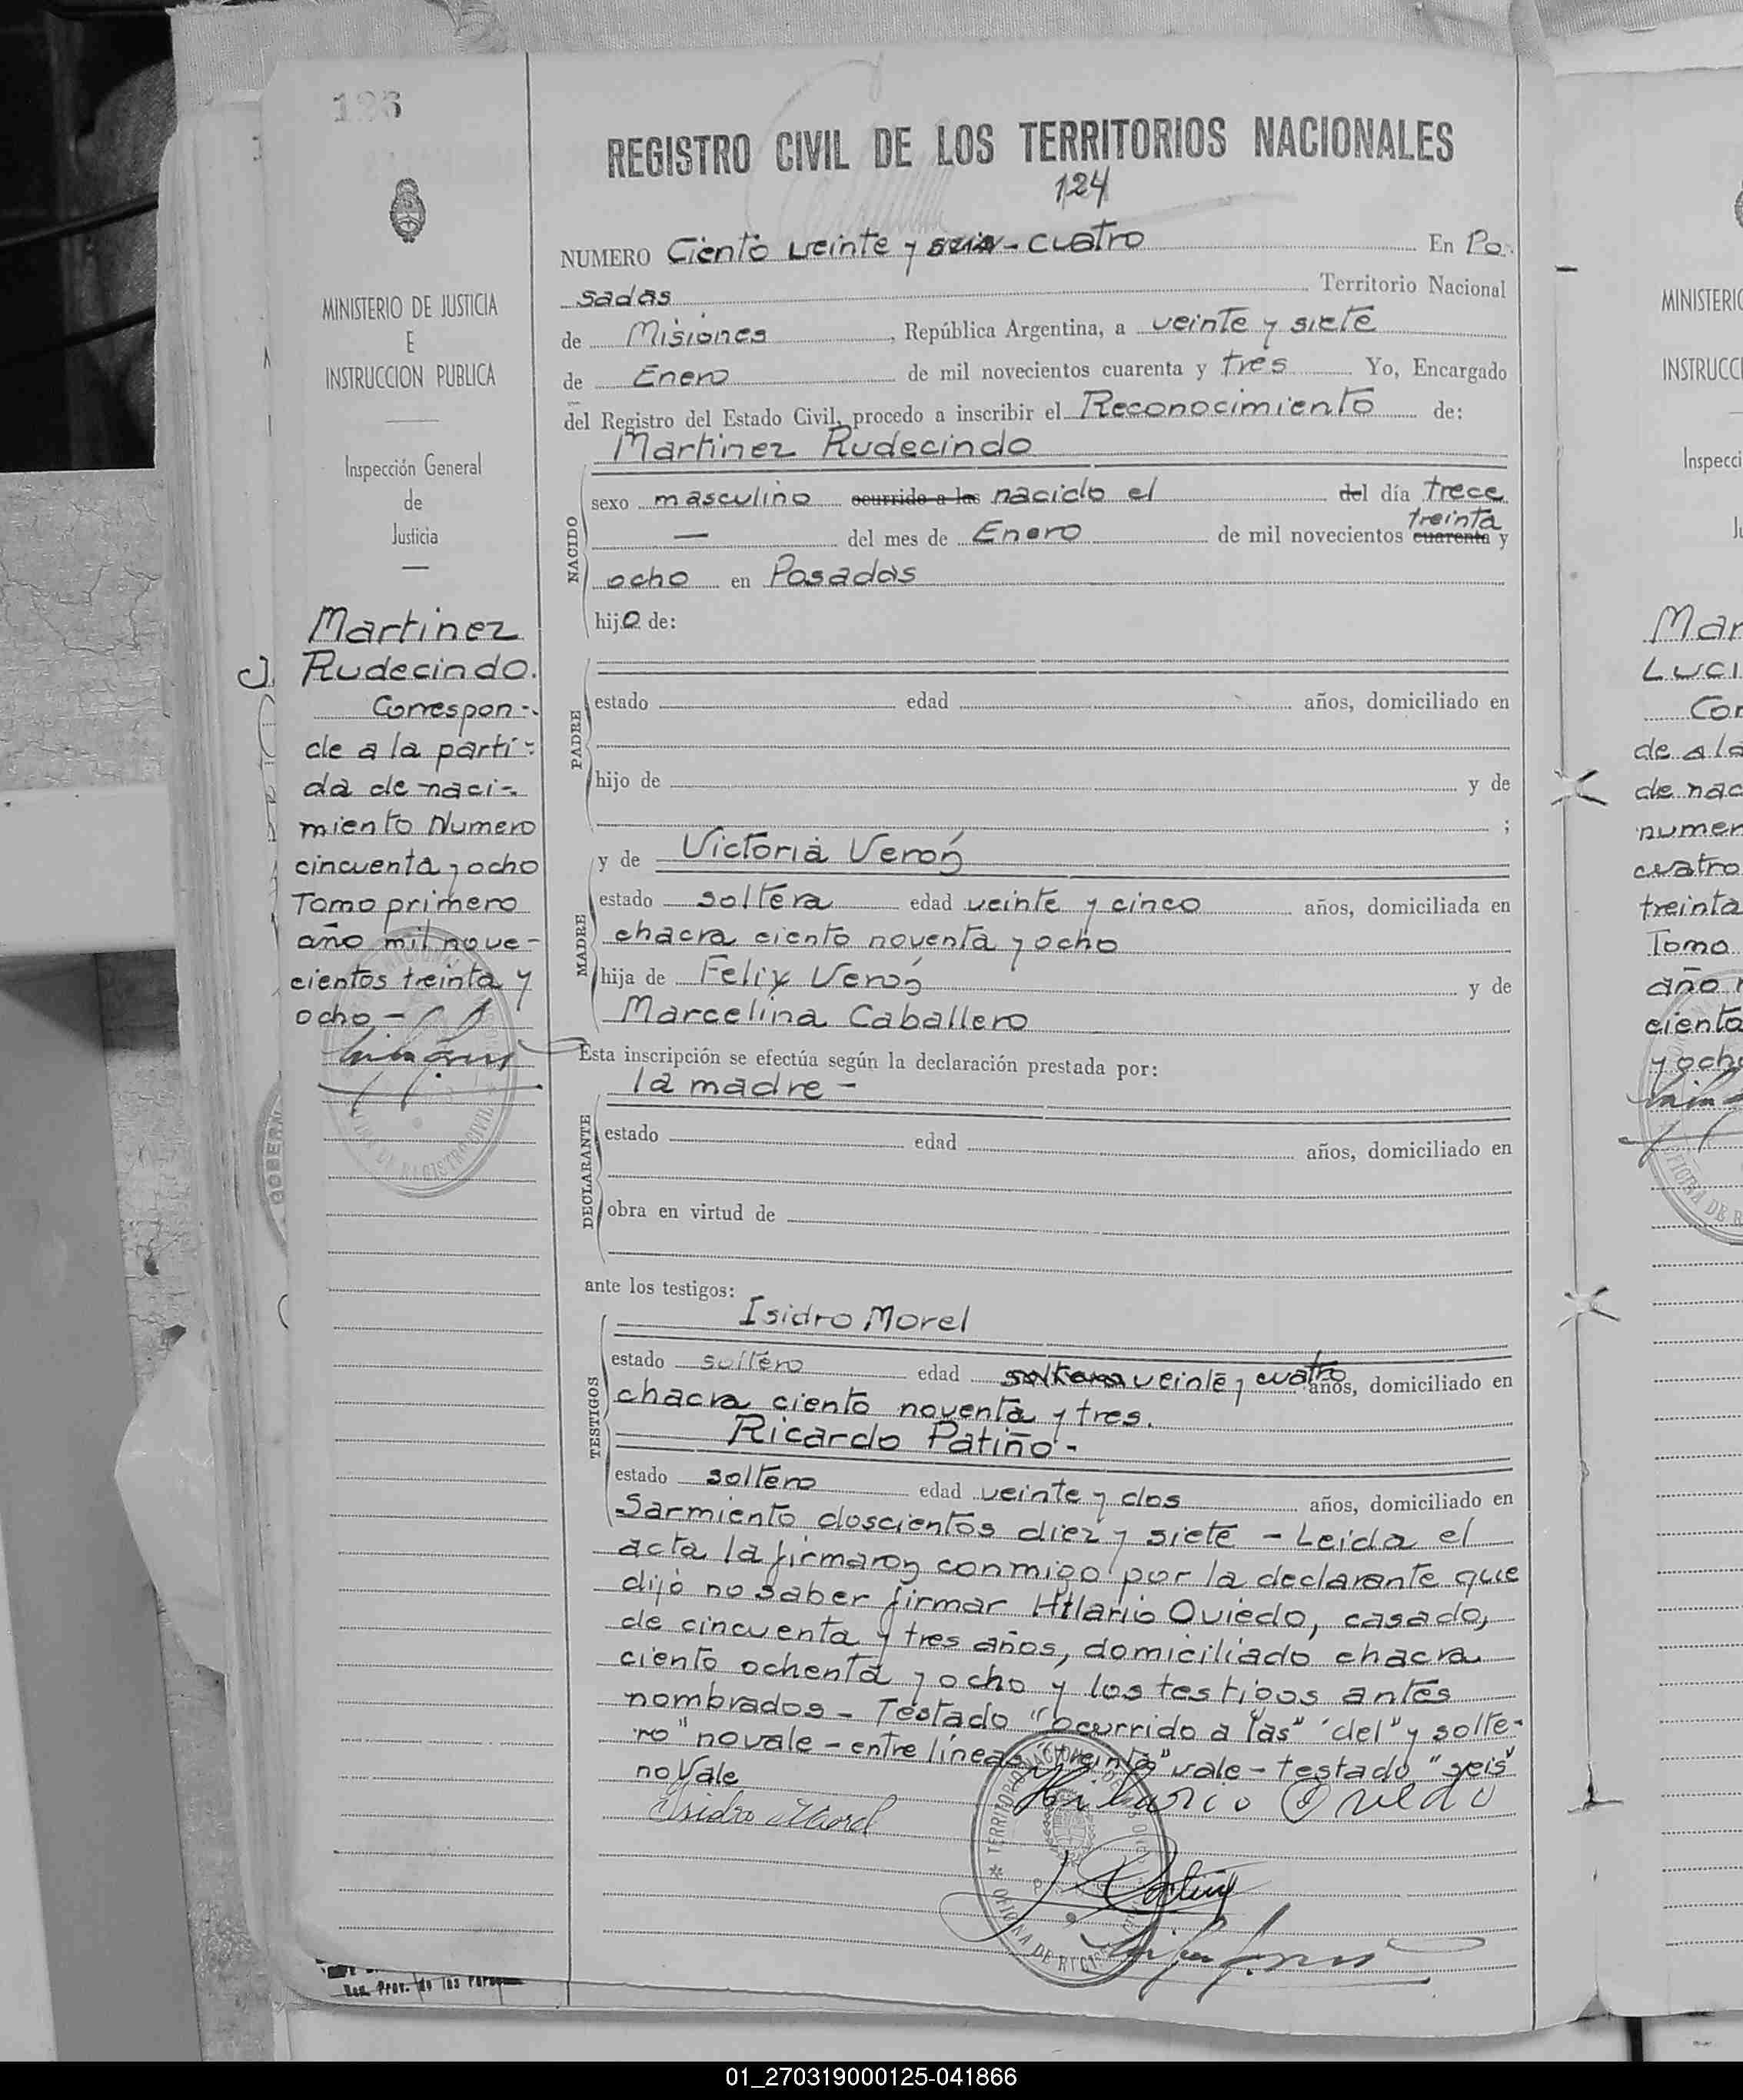 126
REGISTRO CIVIL DE LOS TERRITORIOS NACIONALES
124
NUMERO Ciento veinte y seis - cuatro En Po
sadas Territorio Nacional
de Misiones, República Argentina, a veinte y siete
de Enero de mil novecientos cuarenta y tres Yo, Encargado
del Registro del Estado Civil, procedo a inscribir el Reconocimiento de:
Martinez Rudecindo
NACIDO
sexo masculino ocurrido a las nacido el del día trece
treinta
— del mes de Enero de mil novecientos cuarenta y
ocho en Posadas
hijo de:
PADRE
estado edad años, domiciliado en
hijo de y de
;
MADRE
y de Victoria Verón
estado soltera edad veinte y cinco años, domiciliada en
chacra ciento noventa y ocho
hija de Felix Verón y de
Marcelina Caballero
Esta inscripción se efectúa según la declaración prestada por:
la madre -
DECLARANTE
estado edad años, domiciliado en
obra en virtud de
ante los testigos:
TESTIGOS
Isidro Morel
estado soltero edad veinte y cuatro años, domiciliado en
chacra ciento noventa y tres.
Ricardo Patiño -
estado soltero edad veinte y dos años, domiciliado en
Sarmiento doscientos diez y siete - Leida el
acta la firmaron conmigo por la declarante que
dijo no saber firmar Hilario Oviedo, casado,
de cincuenta y tres años, domiciliado chacra
ciento ochenta y ocho y los testigos antes
nombrados - Testado "ocurrido a las" "del" y solte-
ro" no vale - entre líneas "treinta" vale - testado "seis"
no vale
Isidro Morel
Hilario Oviedo
TERRITORIO NACIONAL DE
OFICINA DE REGIS
MINISTERIO DE JUSTICIA
E
INSTRUCCION PUBLICA
Inspección General
de
Justicia
Martinez
Rudecindo.
Correspon-
de a la parti-
da de naci-
miento Numero
cincuenta y ocho
Tomo primero
año mil nove-
cientos treinta y
ocho -
REGISTRO CIVIL
GOBERN
MINISTERIO
INSTRUCCI
Inspecci
Mar
Luci
Cor
de a la
de nac
numer
cuatro
treinta
Tomo
año
ciento
y ocho
OFICINA DE R
01_270319000125-041866